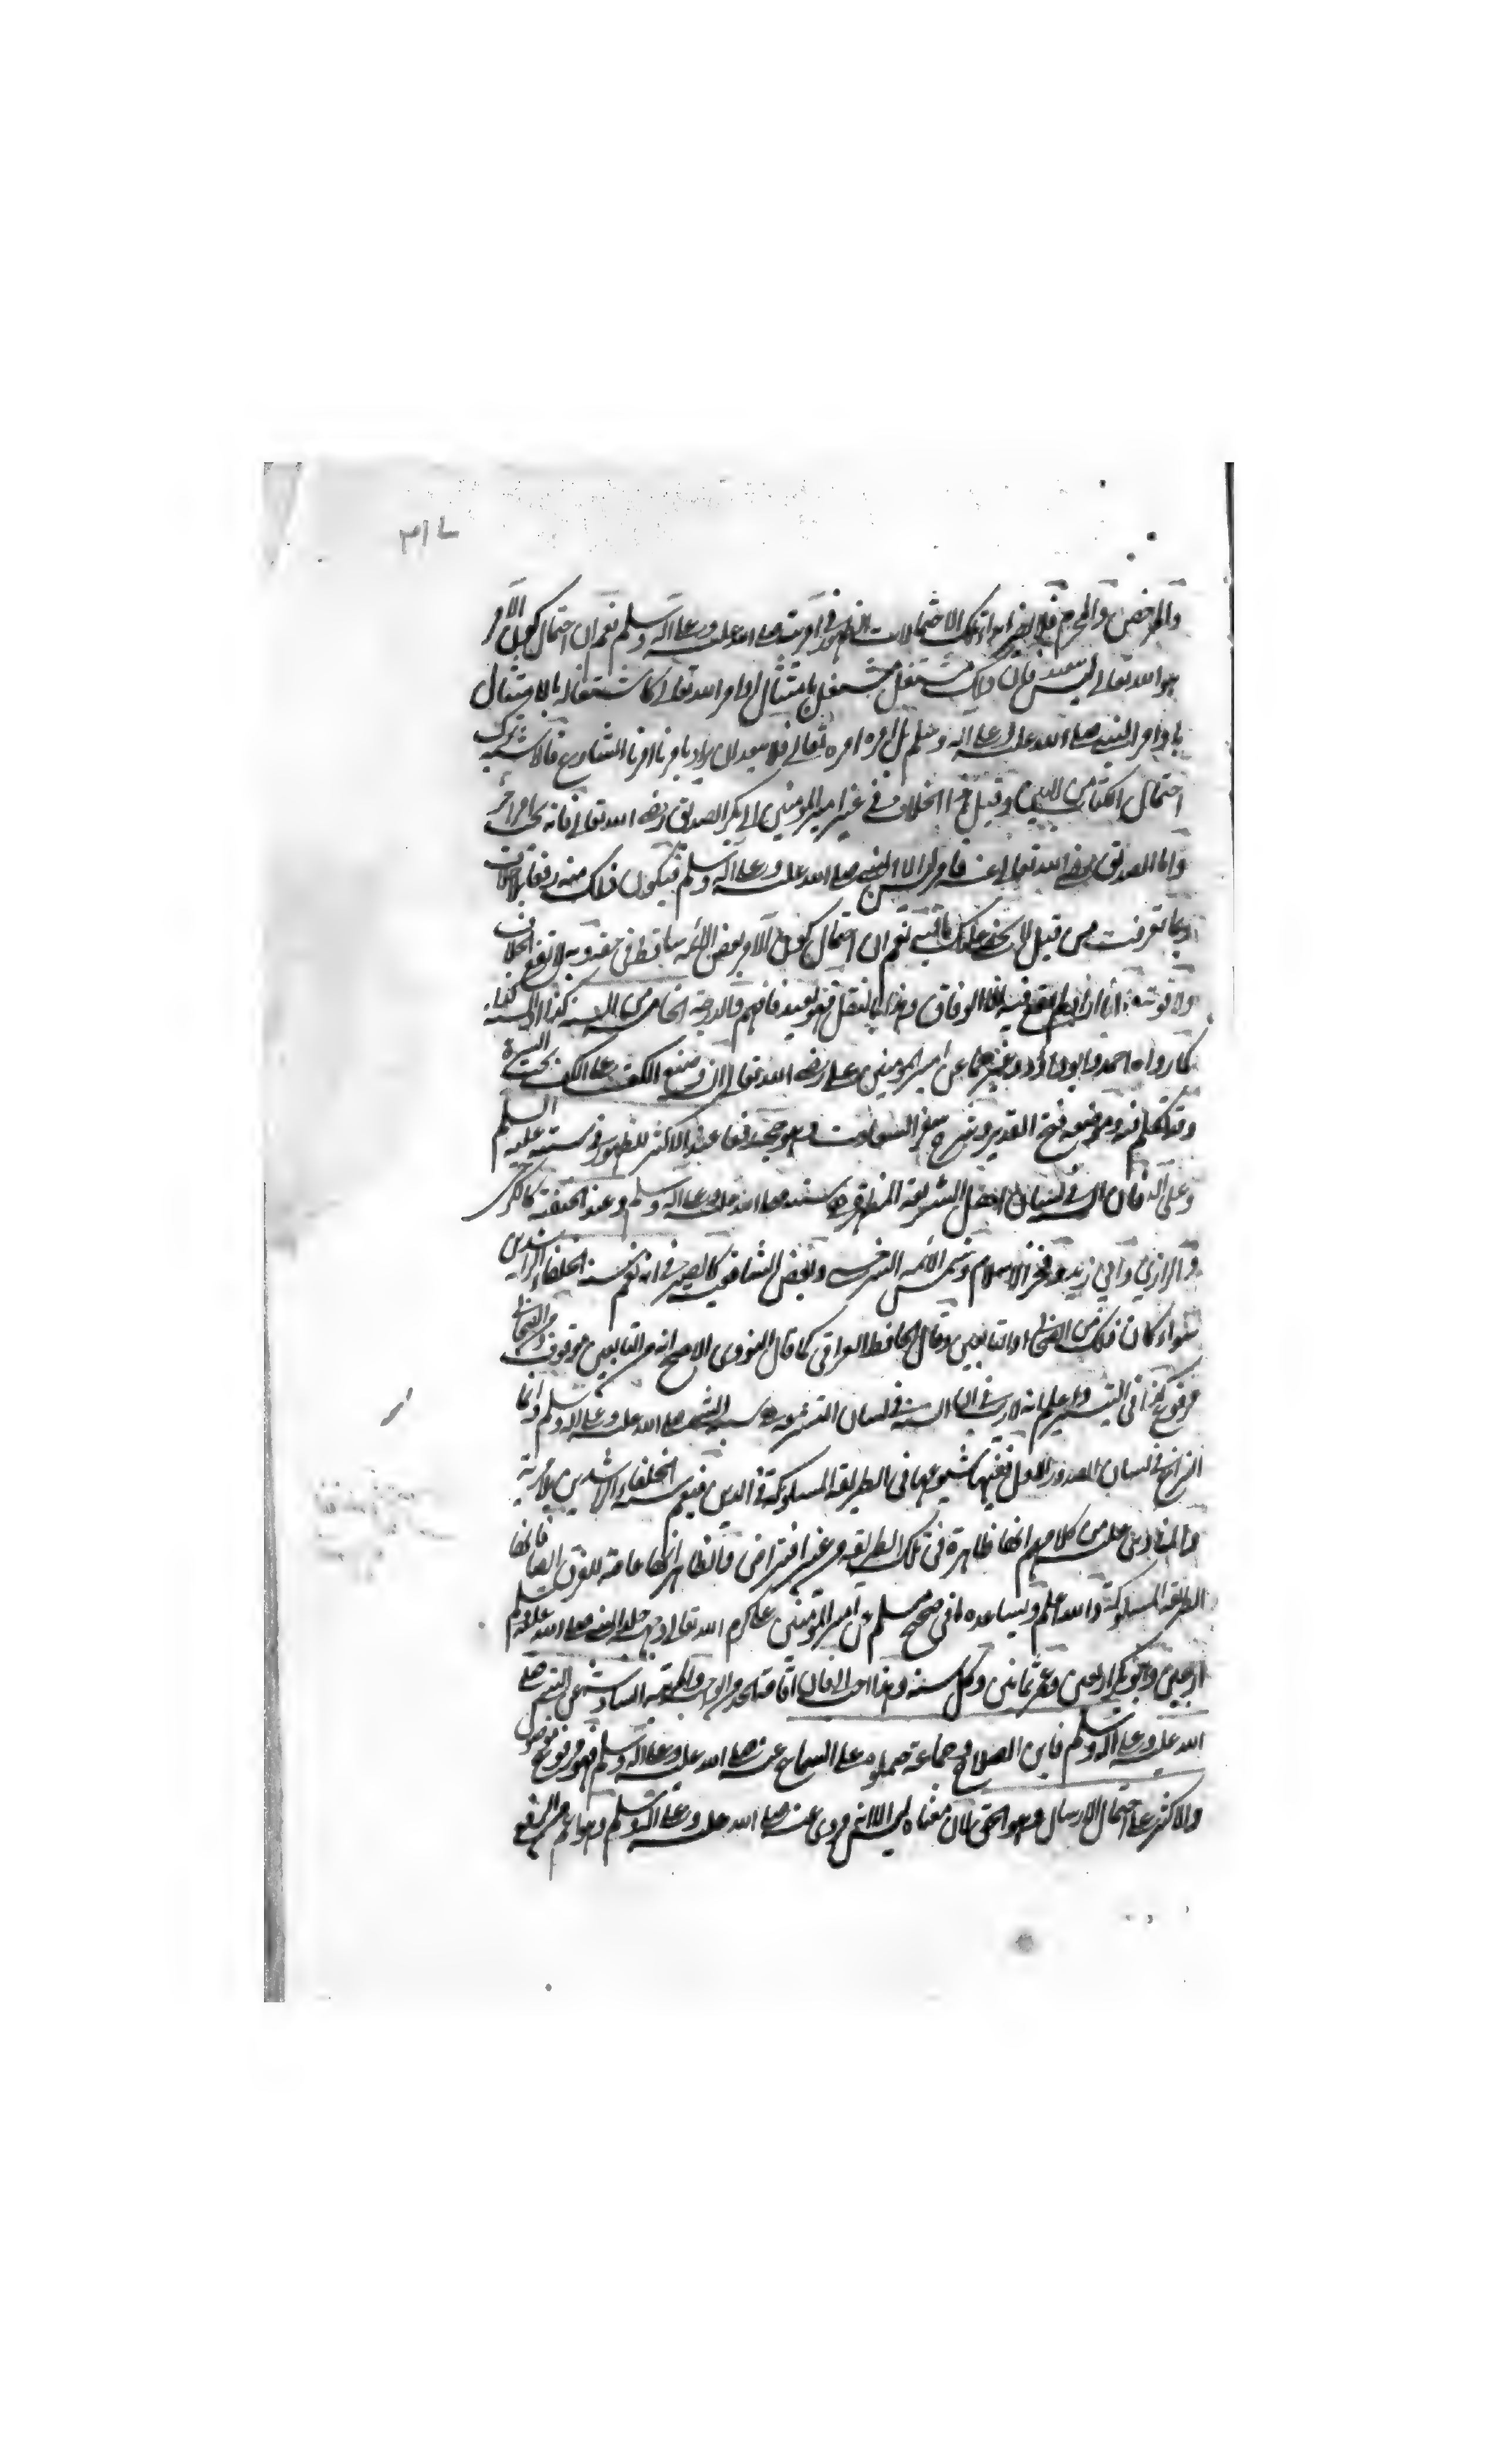 والمرخص والمحرم فلا يضر ابداء تلك الاحتمالات الظهور في امرية صلى الله عليه وعلى آله وسلم نعم ان احتمال كون الآمر
هو الله تعالى ليس ببعيد فان ذلك مشتغل بامتثال اوامر الله تعالى كاشتغاله بالامتثال
باوامر النبي صلى الله عليه وعلى آله وسلم بل امره امره تعالى فلا يبعد ان يراد بامرنا امرنا الشارع فالاشبه ترك
احتمال الكتاب من البين وقيل هذا الخلاف في غير امير المؤمنين ابي بكر الصديق رضي الله تعالى فانه تحت امر آخر
واما الصديق رضي الله تعالى عنه فآمره ليس الا النبي صلى الله عليه وعلى آله وسلم فيكون ذلك منه رفعا بلا خلاف
وبما تعرفت من قبل لا يخفى عليك ما فيه نعم ان احتمال كون الآمر بعض الائمة ساقط في حقه وبه لا يقع الخلاف
ولا قوته اما انه لم يقع فيه الا الوفاق وهذا بالنقل فهو بعيد فافهم والدرجة الخامس من السنة كذا او السنة كذا
كما رواه احمد وابو داود وغيرهما عن امير المؤمنين علي رضي الله تعالى ان وضع الكف على الكف تحت السرة
وقد تكلم فيه وموضعه فتح القدير وشرح سفر السعادت وهو حجة رفعا عند الاكثر للظهور في سنته عليه السلم
وعلى آله فان السنة في لسان اهل الشريعة المطهرة سنته صلى الله عليه وعلى آله وسلم وعند الحنفية كالكرخي
والرازي وابي زيد وفخر الاسلام وشمس الائمة السرخسي وبعض الشافعية كالصيرفي انه تعم سنة الخلفاء الراشدين
سواء كان ذلك من الصحابي او التابعين وقال الحافظ العراقي كما قال النووي الاصح انه من التابعين موقوف ومن الصحابي
مرفوع كذا في التيسير واعلم انه لا ريب في ان السنة في لسان التشريعة سنة النبي صلى الله عليه وعلى آله وسلم وانما
النزاع في لسان الصدور الاول ففيها شيوعها في الطريقة المسلوكة في الدين فتعم سنة الخلفاء الراشدين بلا مرية
والمتأدى من كلامهم انها ظاهرة في تلك الطريقة من غير افتراض والظاهر انها عامة للفرق ايضا فانها
الطريقة المسلوكة والله اعلم ويساعده ما في صحيح مسلم عن امير المؤمنين علي كرم الله تعالى وجهه جلد النبي صلى الله عليه وسلم
اربعين وابو بكر اربعين وعمر ثمانين وكل سنة وهذا احب الي فان اقامة الحد من الواجبات والمرتبة السادسة عن النبي صلى
الله عليه وعلى آله وسلم فابن الصلاح وجماعة حملوه على السماع عنه صلى الله عليه وعلى آله وسلم فهو مرفوع موصول
والاكثر على احتمال الارسال وهو الحق لان معناه ليس الا انه مروي عنه صلى الله عليه وعلى آله وسلم وهو اعم من الرفع